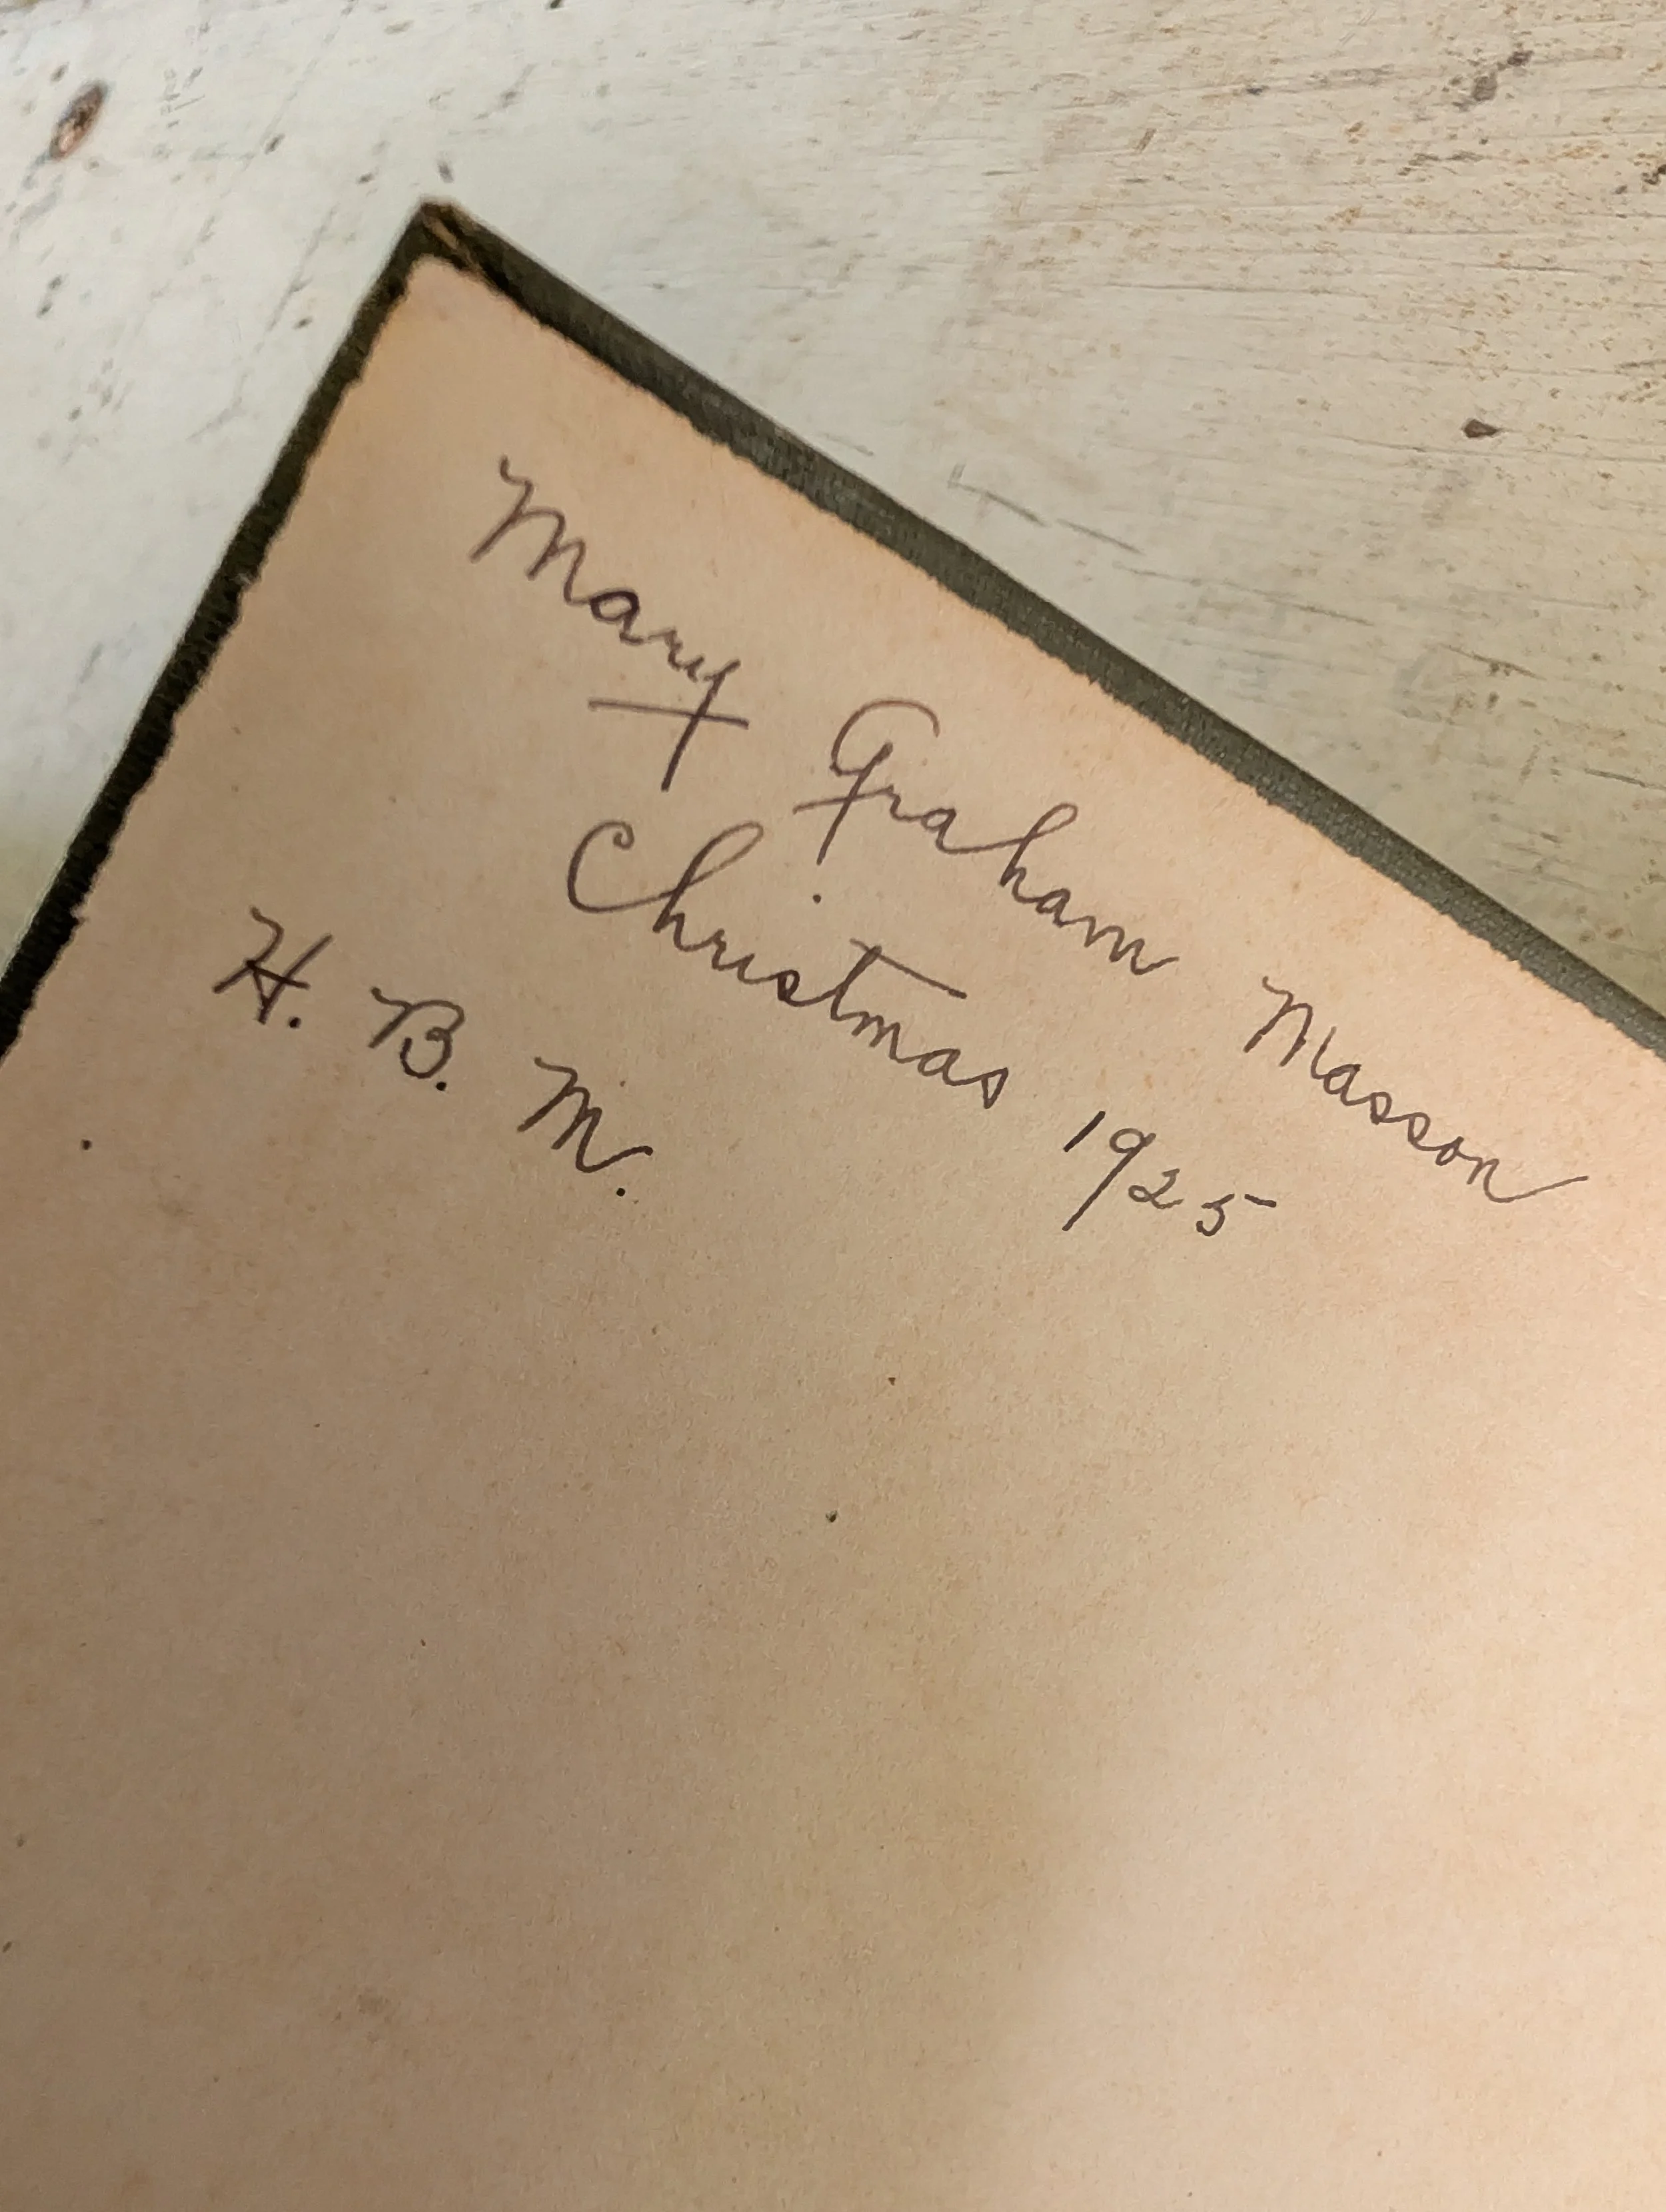 Mary Graham Masson
Christmas 1925
H. B. M.